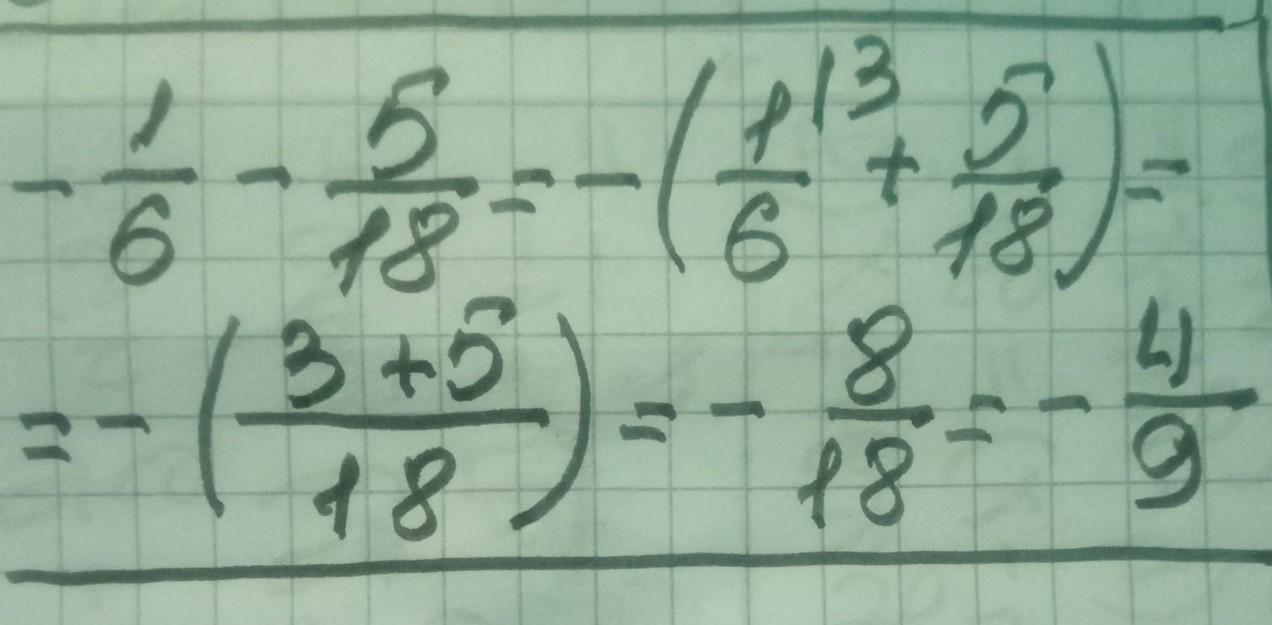 - 1/6 - 5/18 = - (1/6 |3 + 5/18) =
= - (3+5/18) = - 8/18 = - 4/9